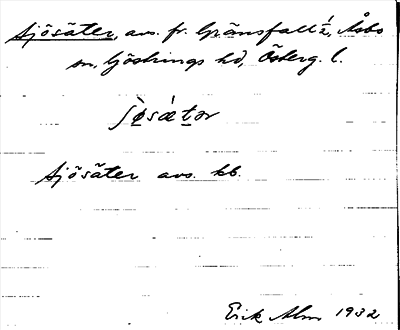 Sjösäter, avs. fr. Gränsfall ½, Åsbo
sn, Göstrings hd, Österg. l.
ʃø̀sætər
Sjösäter avs. kb.
Erik Alm 1932